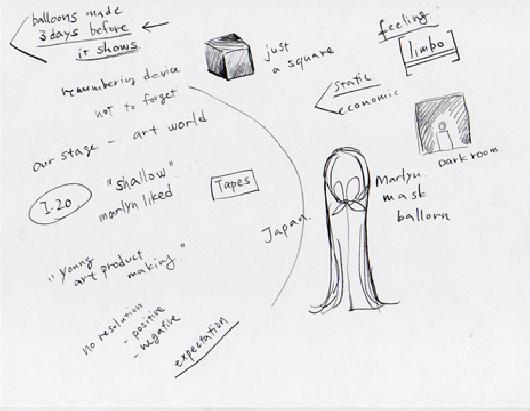 balloons made
3 days before
it shows.
just
a square.
feeling
limbo
static
economic
remembering device
not to forget
our stage - art world
1.20
"shallow"
marlyn liked
Tapes
Darkroom.
Marlyn.
mask
ballorn
Japan.
"young
art product
making."
no resolution
- positive
- negative
expectation